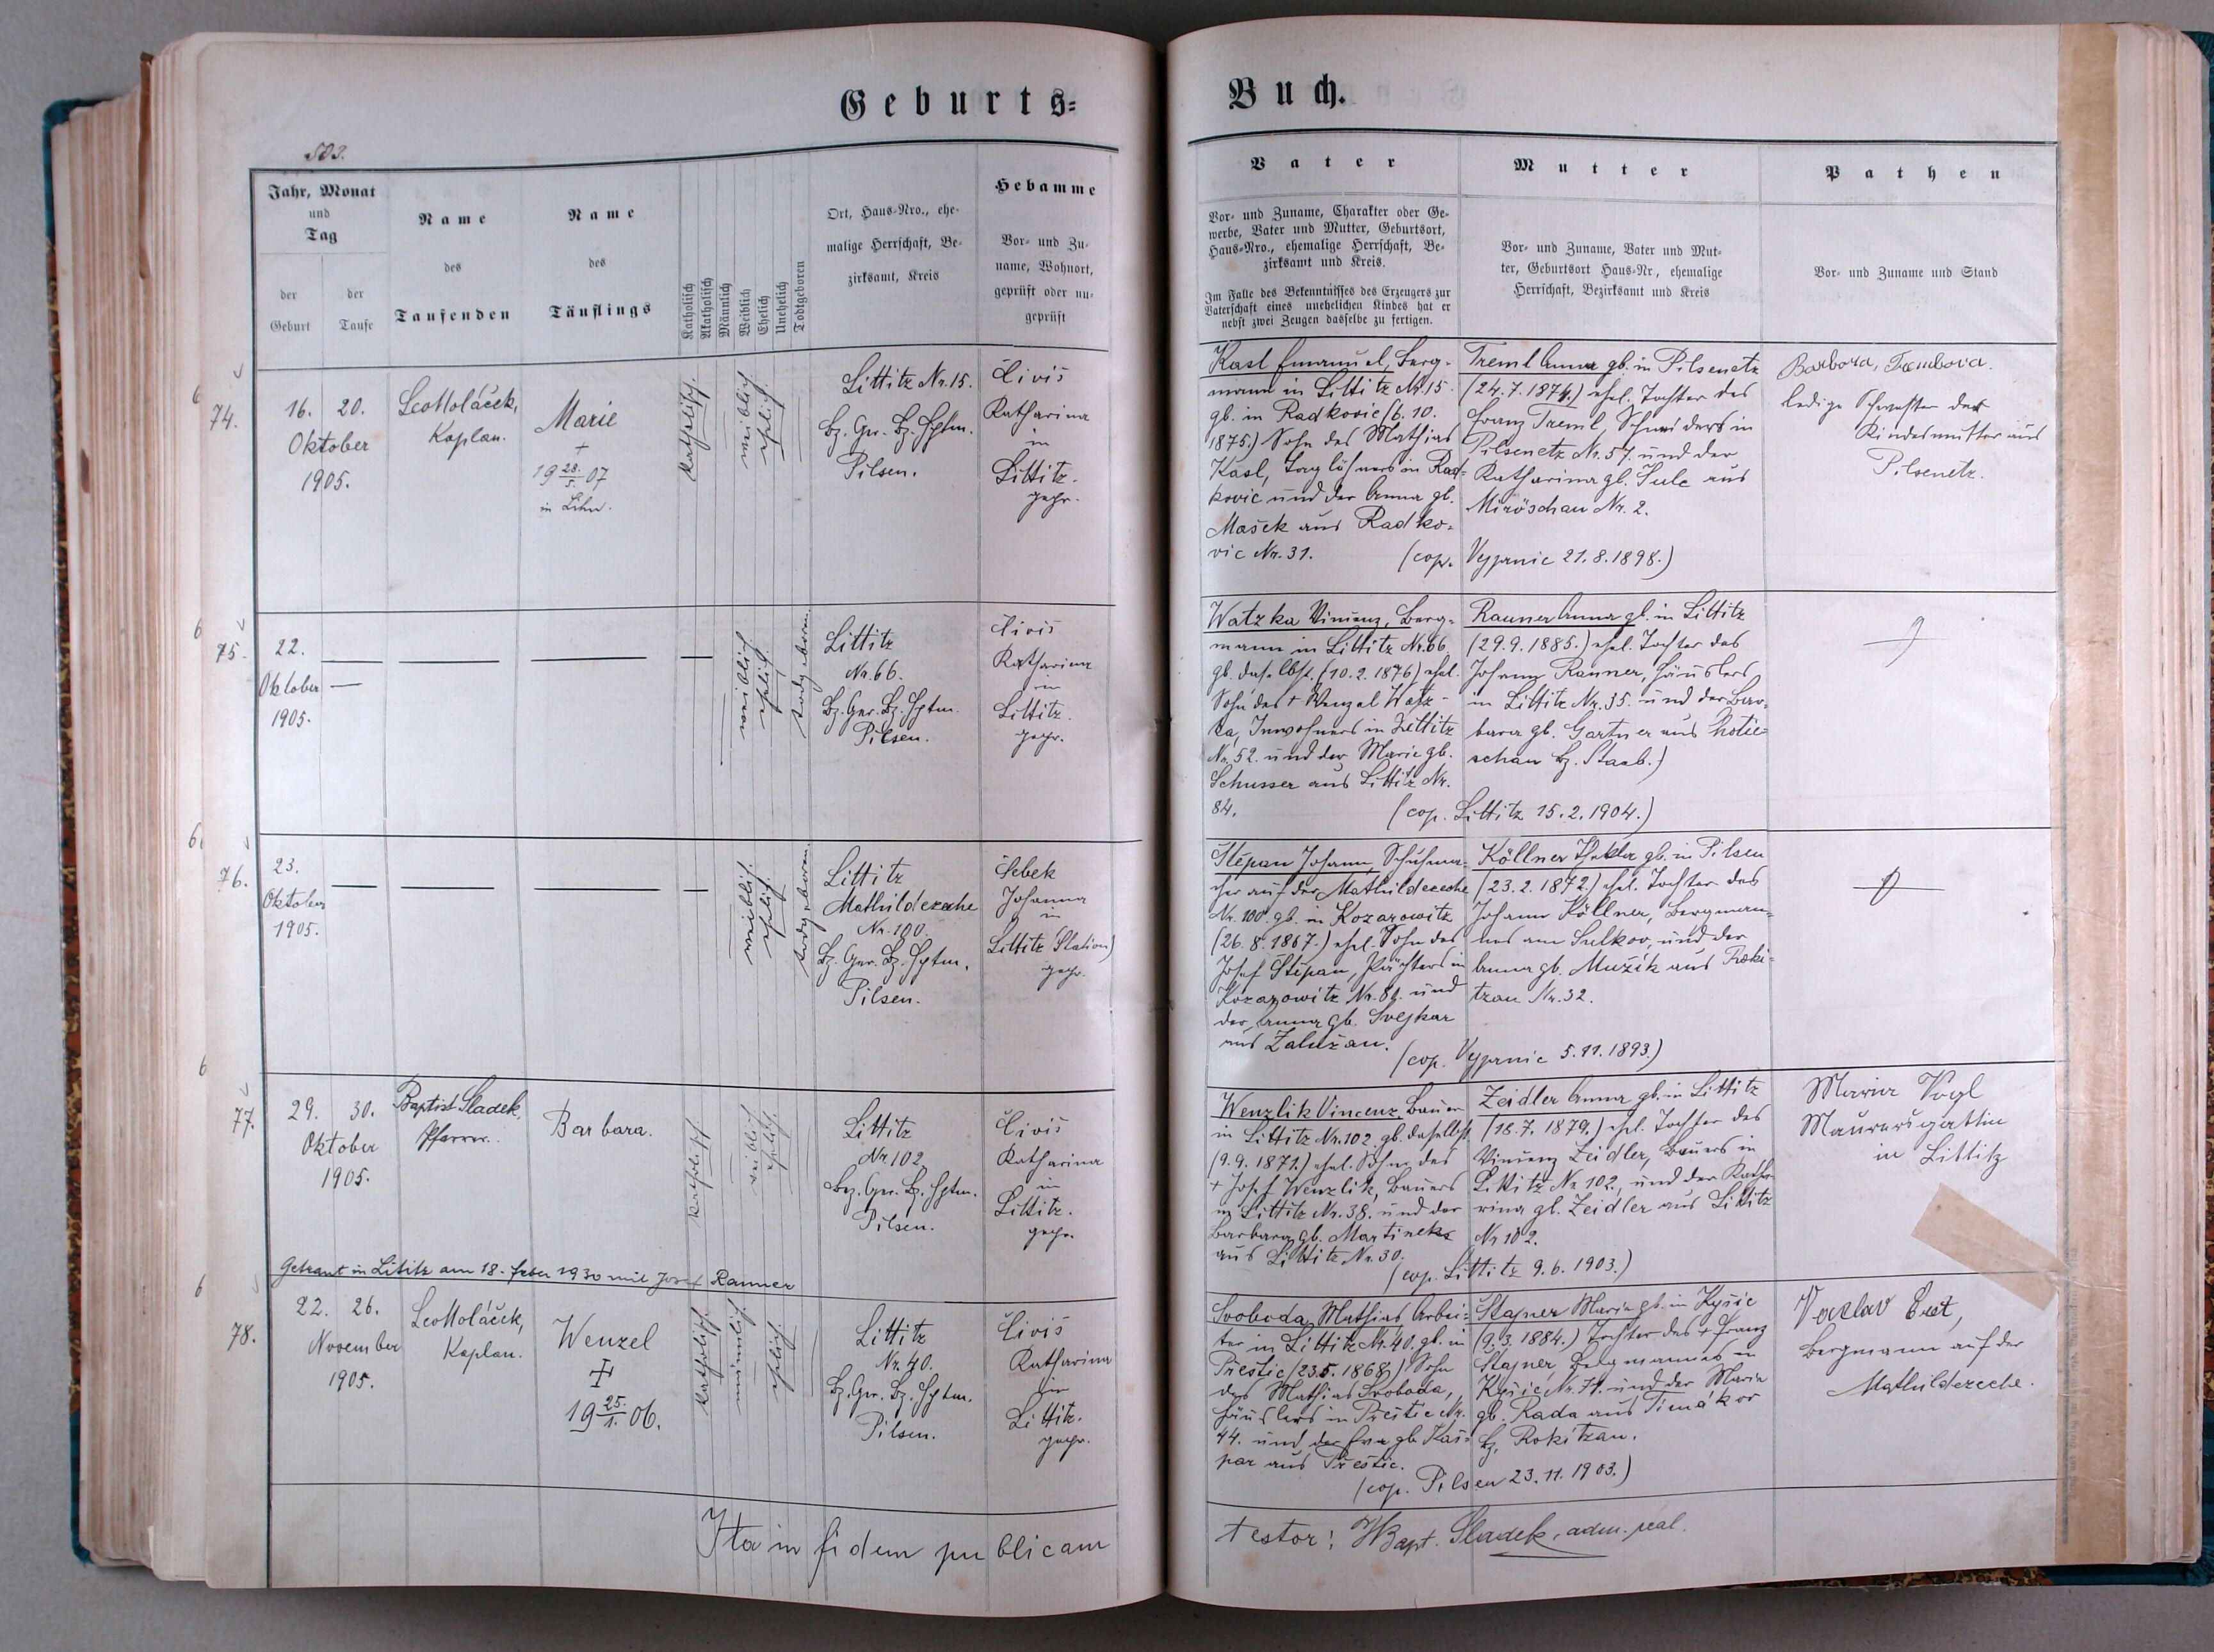 Geburts=
Buch.
503.
Jahr, Monat
und
Tag
der
Geburt
der
Taufe
Name
des
Taufenden
Name
des
Täuflings
Katholisch
Akatholisch
Männlich
Weiblich
Ehelich
Unehelich
Todtgeboren
Ort, Haus-Nro., ehe-
malige Herrschaft, Be-
zirksamt, Kreis
Hebamme
Vor- und Zu-
name, Wohnort,
geprüft oder nu-
geprüft
Vater
Vor- und Zuname, Charakter oder Ge-
werbe, Vater und Mutter, Geburtsort,
Haus-Nro., ehemalige Herrschaft, Be-
zirksamt und Kreis.
Im Falle des Bekenntnisses des Erzeugers zur
Vaterschaft eines unehelichen Kindes hat er
nebst zwei Zeugen dasselbe zu fertigen.
Mutter
Vor- und Zuname, Vater und Mut-
ter, Geburtsort Haus-Nr, ehemalige
Herrschaft, Bezirksamt und Kreis
Pathen
Vor- und Zuname und Stand
6
74.
16. 20.
Oktober
1905.
Leo Holáček,
Kaplan.
Marie
+
19 28/5. 07
in Lihn.
katholisch.
weiblich
ehelich
Littitz Nr. 15.
Bz. Ger. Bz. Hptm.
Pilsen.
Čivis
Katharina
in
Littitz.
gepr.
Kasl Emanuel, Berg-
mann in Littitz Nr. 15
gb. in Radkovic (6. 10.
1875.) Sohn des Mathias
Kasl, Taglöhners in Rad-
kovic und der Anna gb.
Mašek aus Radko-
vic Nr. 31.
Treml Anna gb. in Pilsenetz
(24. 7. 1874.) ehel. Tochter des
Franz Treml, Schneiders in
Pilsenetz Nr. 57. und der
Katharina gb. Šulc aus
Miröschau Nr. 2.
(cop. Vejprnic 21. 8. 1898.)
Barbora
ledige Schwester der
Kindesmutter aus
Pilsenetz.
6
75.
22.
Oktober
1905.
weiblich
ehelich.
todtgeboren.
Littitz
Nr. 66.
Bz. Ger. Bz. Hptm.
Pilsen.
Čivis
Katharina
in
Littitz.
gepr.
Watzka Vincenz, Berg-
mann in Littitz Nr. 66
gb. daselbst. (10. 2. 1876) ehel.
Sohn des + Wenzel Watz-
ka, Inwohners in Littitz
Nr. 52. und der Marie gb.
Schusser aus Littitz Nr.
84.
Ranner Anna gb. in Littitz
(29. 9. 1885.) ehel. Tochter des
Johann Ranner, Häuslers
in Littitz Nr. 35. und der Bar-
bara gb. Gartner aus Chotie-
schau Bz. Staab.)
(cop. Littitz 15. 2. 1904.)
6
76.
23.
Oktober
1905.
weiblich.
ehelich.
todtgeboren.
Littitz
Mathildezeche
Nr. 100.
Bz. Ger. Bz. Hptm.
Pilsen.
Šebek
Johanna
in
Littitz (Station)
gepr.
Štěpan Johann, Schuhma-
cher auf der Mathildezeche
Nr. 100. gb. in Kozarowitz
(26. 8. 1867.) ehel. Sohn des
Josef Štěpan, Pächters in
Kozarowitz Nr. 84. und
der Anna gb. Švejkar
aus Zalužan.
Köllner Thekla gb. in Pilsen
(23. 2. 1872.) ehel. Tochter des
Johann Köllner, Bergman-
nes am Sulkov, und der
Anna gb. Mužik aus Roki-
tzan Nr. 32.
(cop. Vejprnic 5. 11. 1893.)
6
77.
29. 30.
Oktober
1905.
Baptist Sladek,
Pfarrer.
Barbara.
katholisch
weiblich
ehelich.
Littitz
Nr 102
Bez. Ger. Bz. Hptm.
Pilsen.
Čivis
Katharina
in
Littitz.
gepr.
Wenzlik Vincenz, Bauer
in Littitz Nr. 102. gb. daselbst
(9. 9. 1871.) ehel. Sohn des
+ Josef Wenzlik, Bauers
in Littitz Nr. 38. und der
Barbara gb. Martinek
aus Littitz Nr. 30.
Zeidler Anna gb. in Littitz
(18. 7. 1879.) ehel. Tochter des
Vincenz Zeidler, Bauers in
Littitz Nr 102, und der Katha-
rina gb. Zeidler aus Littitz
Nr 102.
(cop. Littitz 9. 6. 1903.)
Maria Vogl
Maurersgattin
in Littitz
Getraut in Lititz am 18. feber 1930 mit Josef Ranner
6
78.
22. 26.
November
1905.
Leo Holáček,
Kaplan.
Wenzel
19 25./1. 06.
katholisch.
männlich.
ehelich.
Littitz
Nr. 40.
Bz. Ger. Bz. Hptm.
Pilsen.
Čivis
Katharina
in
Littitz.
gepr.
Svoboda Mathias Arbei-
ter in Littitz Nr. 40. gb. in
Přestic (23. 5. 1868) Sohn
des Mathias Svoboda,
Häuslers in Přestic Nr.
44. und der Eva gb. Kaš-
par aus Přestic.
Stajner Maria gb. in Kyšic
(9. 3. 1884.) Tochter des + Franz
Stajner, Bergmannes in
Kyšic Nr. 71. und der Maria
gb. Rada aus Timákov
Bz. Rokitzan.
(cop. Pilsen 23. 11. 1903.)
Vaclav
Bergmann auf der
Mathildezeche.
Ita in fidem publicam
testor: Bapt. Sladek, adm. real.